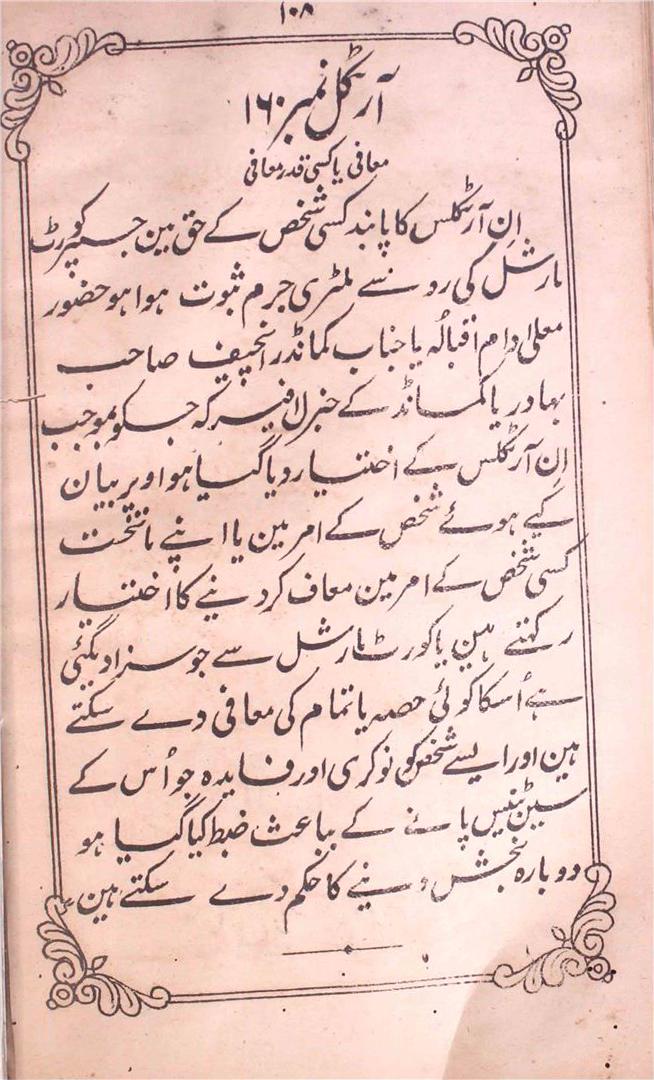 ۱۰۸
آرٹکل نمبر ۱۶۰
معافی یا کسی قدر معافی
اِن آرٹکلس کا پابند کسی شخص کے حق مین جسپر کورٹ
مارشل کی رو سے ملٹری جرم ثبوت ہوا ہو حضور
معلی ادام اقبالُہ یا جناب کمانڈر انچیف صاحب
بہادر یا کمانڈ کے جنرل افیسر کہ جسکو بموجب
اِن آرٹکلس کے اختیار دیا گیا ہو اوپر بیان
کیے ہوئے شخص کے امر مین یا اپنے ماتحت
کسی شخص کے امر مین معاف کر دینے کا اختیار
رکہتے ہین یا کورٹ مارشل سے جو سزا دیگئی
ہے اُسکا کوئی حصہ یا تمام کی معافی دے سکتے
ہین اور ایسے شخص کو نوکری اور فایدہ جو اُس کے
سینٹنیس پانے کے بباعث ضبط کیا گیا ہو
دوبارہ بخش دینے کا حکم دے سکتے ہین